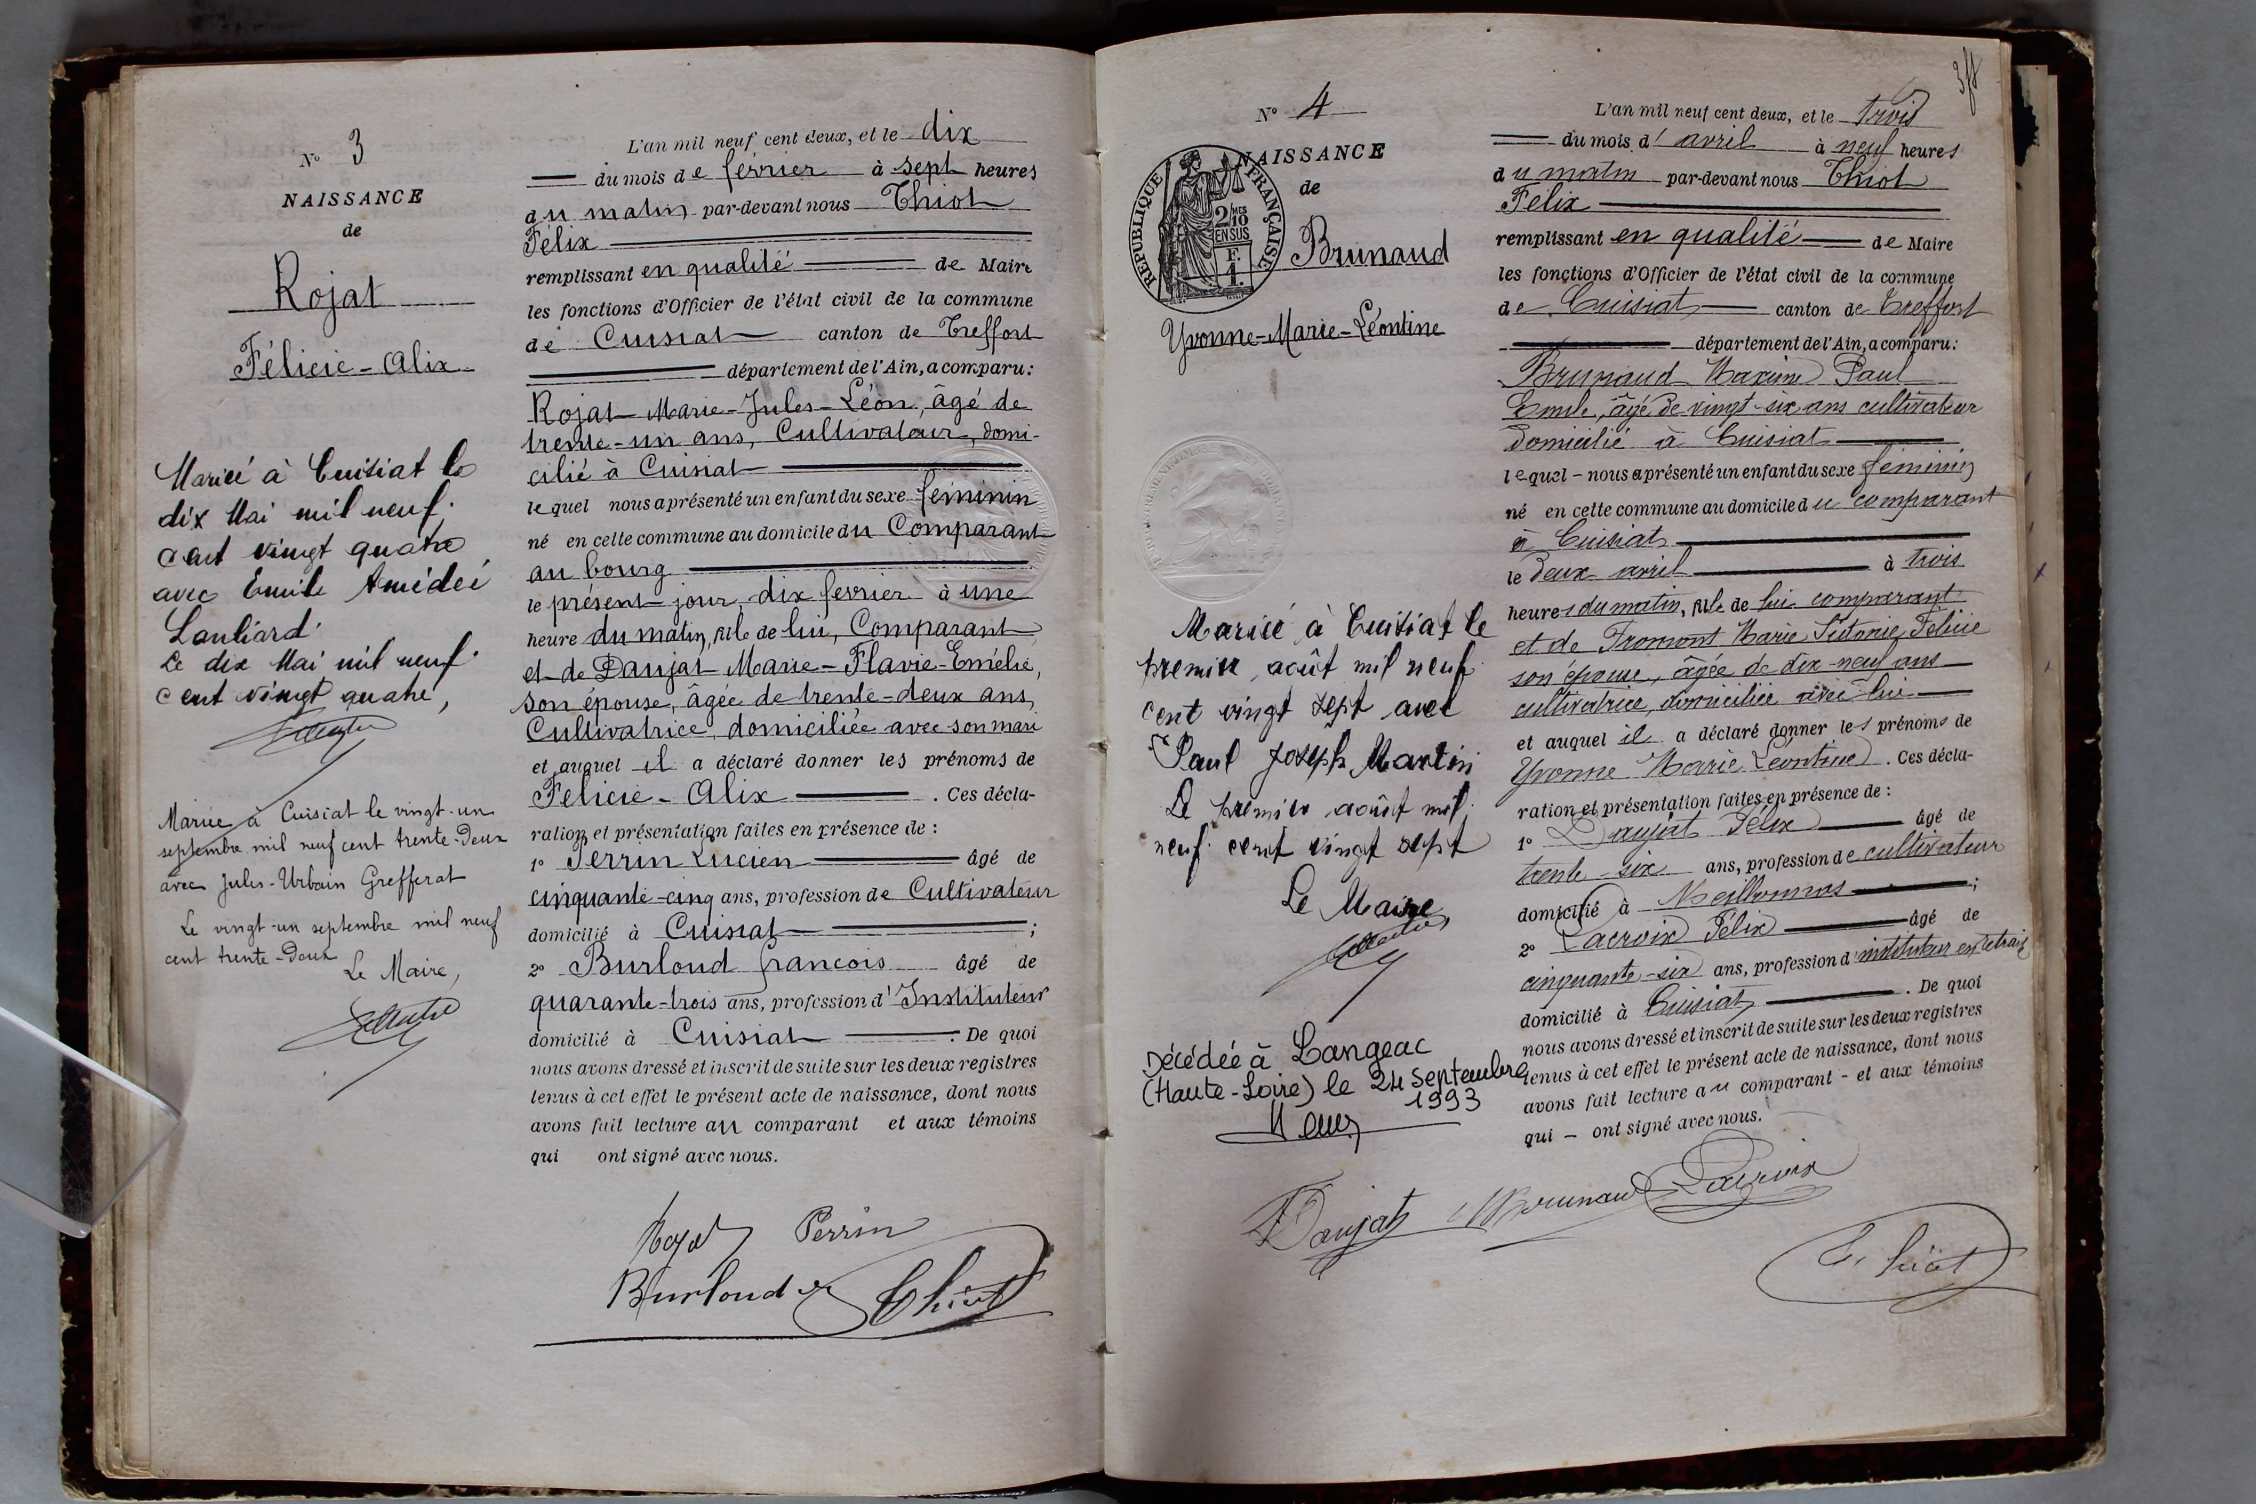 N° 3
NAISSANCE
de
Rojat
Félicie-Alix
Mariée à Cuisiat le
dix Mai mil neuf
cent vingt quatre
avec Emile Amédéé
Lauliard
Le dix Mai mil neuf
cent vingt quatre,
Mariée à Cuisiat le vingt-un
septembre mil neuf cent trente-deux
avec Jules-Urbain Grefferat
Le vingt-un septembre mil neuf
cent trente-deux
Le Maire,
L'an mil neuf cent deux, et le dix
du mois de février à sept heures
du matin par-devant nous Thiot
Félix
remplissant en qualité de Maire
les fonctions d'Officier de l'état civil de la commune
de Cuisiat canton de Treffort
département de l'Ain, a comparu:
Rojat Marie-Jules-Léon, âgé de
trente-un ans, Cultivateur, domi-
cilié à Cuisiat
lequel nous a présenté un enfant du sexe féminin
né en cette commune au domicile du Comparant
au bourg
le présent jour, dix fevrier à une
heure du matin, fille de lui, Comparant
et de Daujat Marie-Flavie-Emélie,
son épouse, âgée de trente-deux ans,
Cultivatrice, domiciliée avec son mari
et auquel il a déclaré donner les prénoms de
Félicie-Alix . Ces décla-
ration et présentation faites en présence de :
1° Perrin Lucien âgé de
cinquante-cinq ans, profession de Cultivateur
domicilié à Cuisiat ;
2° Burloud françois âgé de
quarante-trois ans, profession d'Instituteur
domicilié à Cuisiat . De quoi
nous avons dressé et inscrit de suite sur les deux registres
tenus à cet effet le présent acte de naissance, dont nous
avons fait lecture au comparant et aux témoins
qui ont signé avec nous.
Rojat Perrin
Burloud Thiot
N° 4
NAISSANCE
de
RÉPUBLIQUE FRANÇAISE
2/10 MES
EN SUS
F.
1.
Brunaud
Yvonne-Marie-Léontine
Mariée à Cuisiat le
premier août mil neuf
cent vingt sept avec
Paul Joseph Martin
Le premier août mil
neuf cent vingt sept
Le Maire,
Décédée à Langeac
(Haute-Loire) le 24 septembre
1993
L'an mil neuf cent deux, et le trois
du mois d'avril à neuf heures
du matin par-devant nous Thiot
Félix
remplissant en qualité de Maire
les fonctions d'Officier de l'état civil de la commune
de Cuisiat canton de Treffort
département de l'Ain, a comparu:
Brunaud Maxime Paul
Emile, âgé de vingt-six ans cultivateur
domicilié à Cuisiat
lequel - nous a présenté un enfant du sexe féminin
né en cette commune au domicile du comparant
à Cuisiat
le deux avril à trois
heures du matin, fille de lui comparant
et de Fromont Marie Sidonie Félicie
son épouse, âgée de dix-neuf ans
cultivatrice, domiciliée avec lui
et auquel il a déclaré donner les prénoms de
Yvonne Marie Léontine . Ces décla-
ration et présentation faites en présence de :
1° Daujat Félix âgé de
trente-six ans, profession de cultivateur
domicilié à Meillonnas ;
2° Lacroix Félix âgé de
cinquante-six ans, profession d'instituteur en retraite
domicilié à Cuisiat . De quoi
nous avons dressé et inscrit de suite sur les deux registres
tenus à cet effet le présent acte de naissance, dont nous
avons fait lecture au comparant - et aux témoins
qui - ont signé avec nous.
Daujat Brunaud Lacroix
Thiot